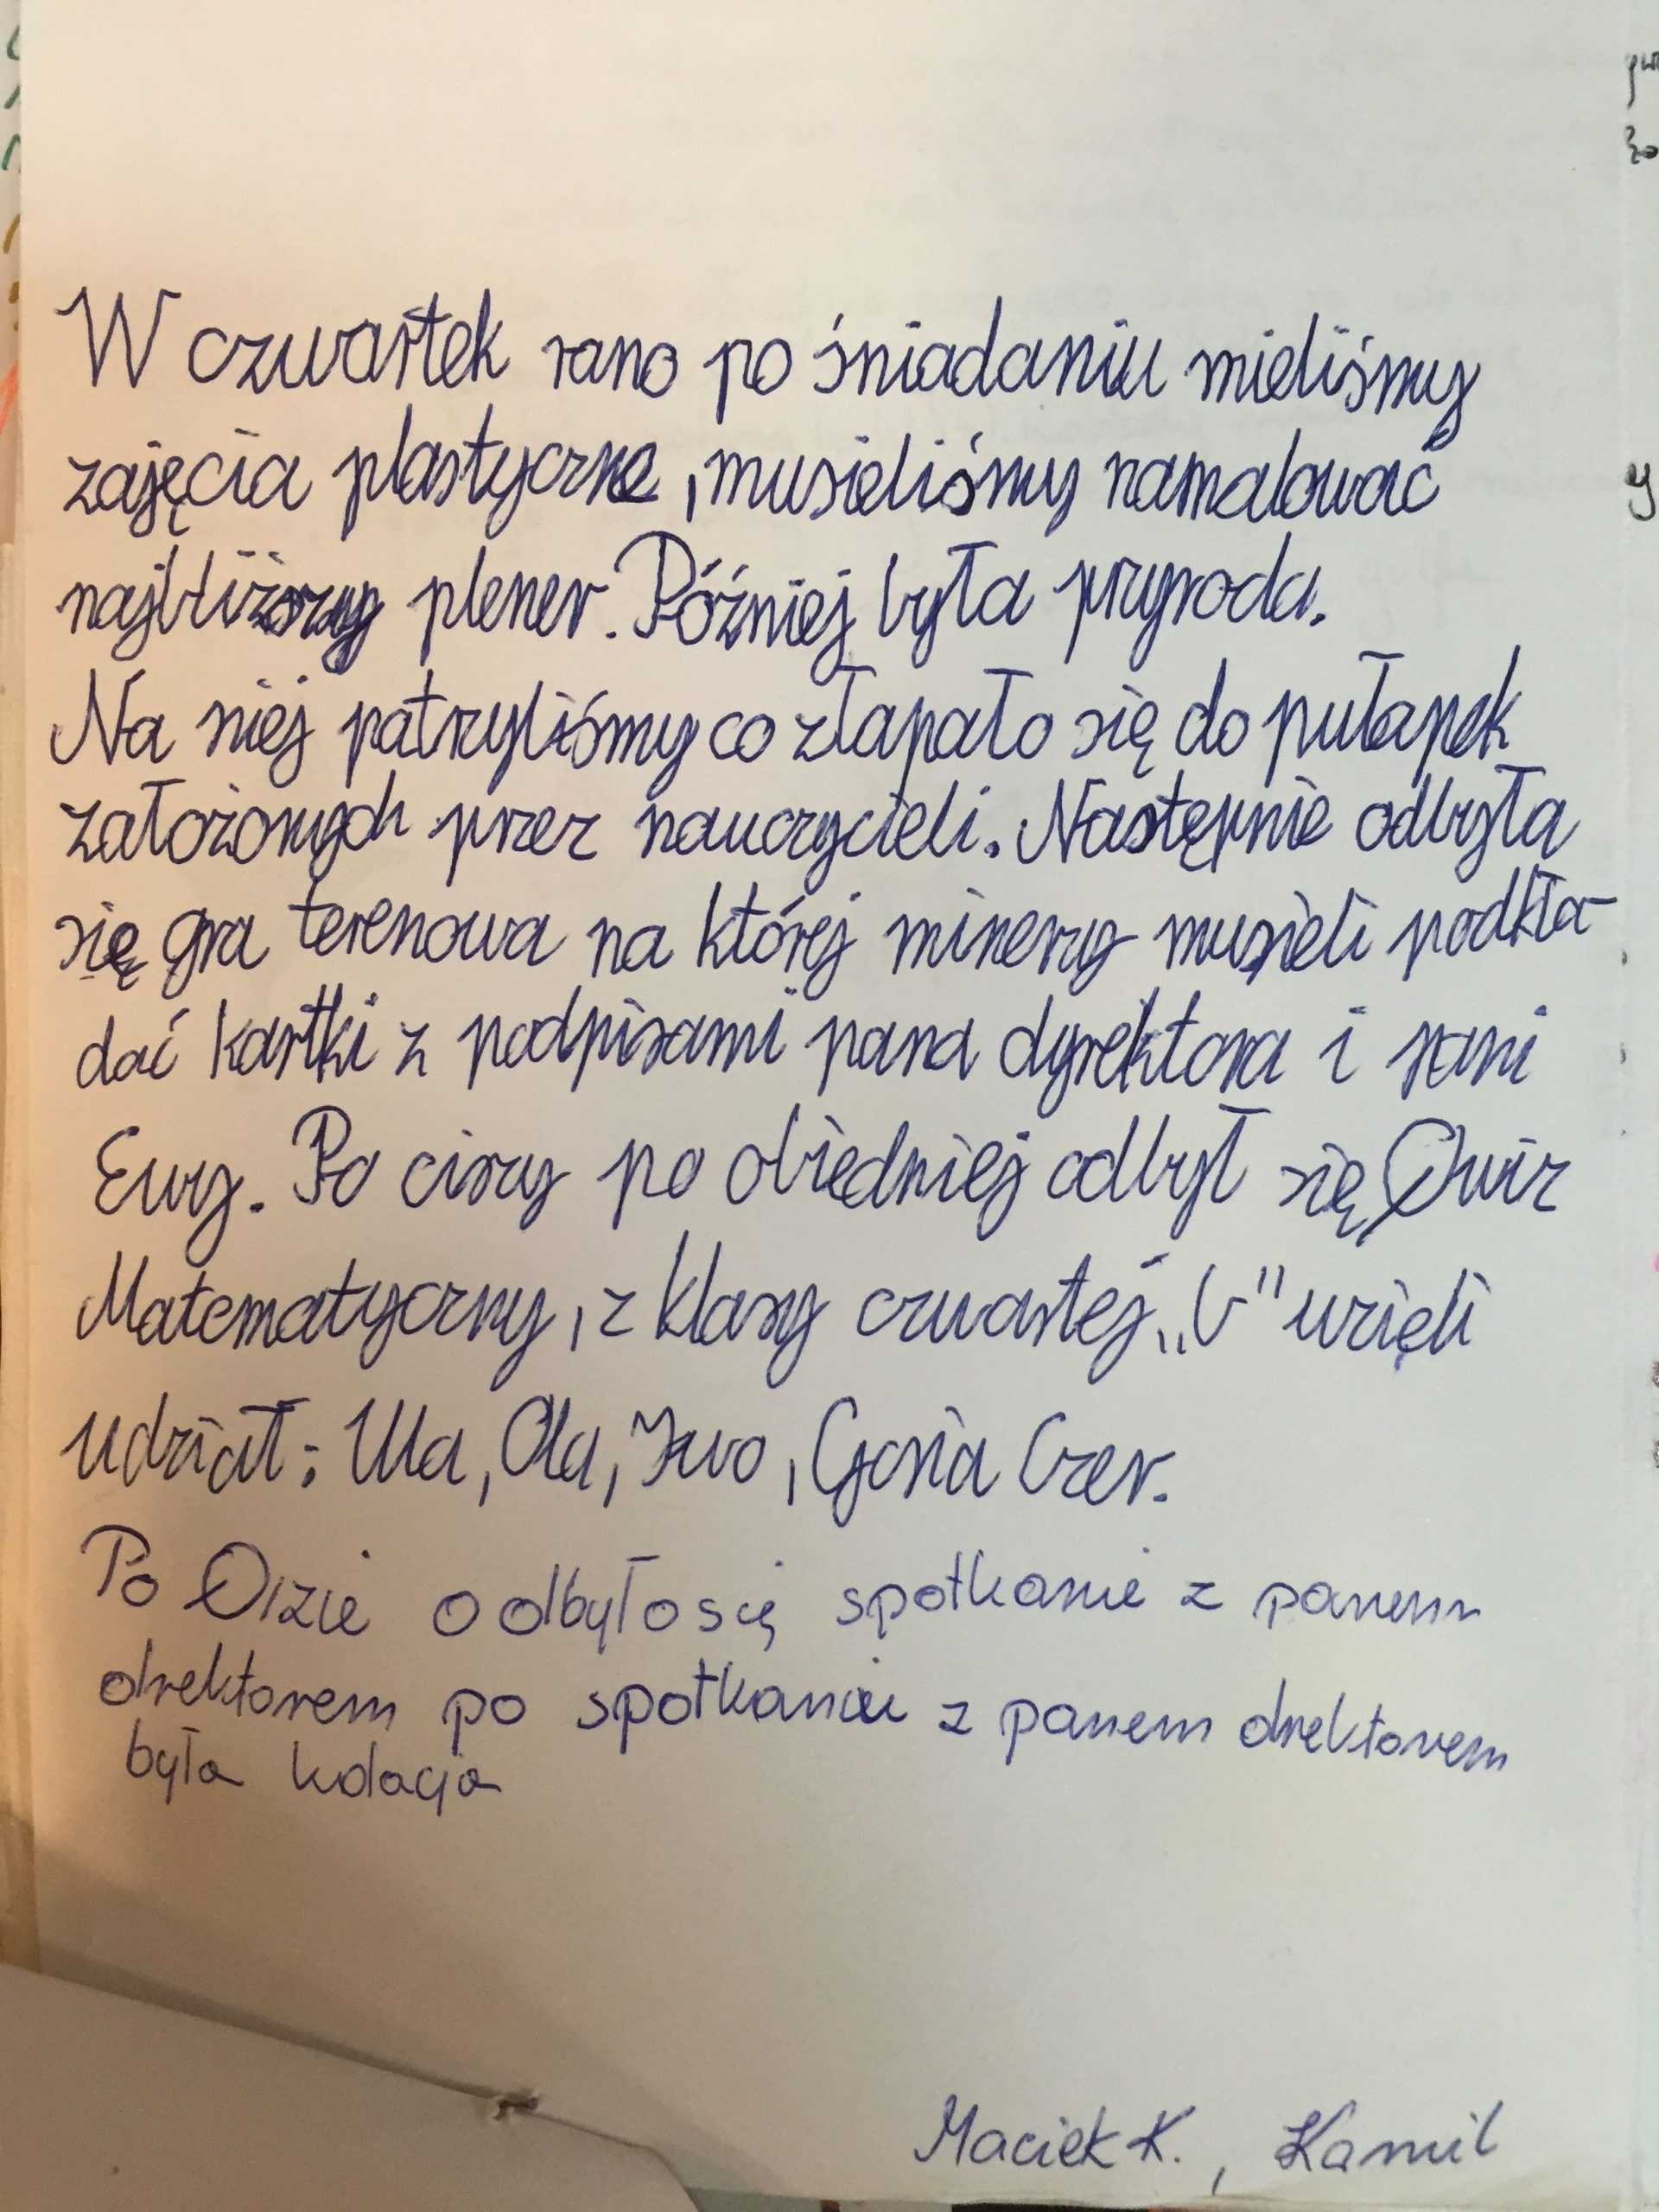 W czwartek rano po śniadaniu mieliśmy
zajęcia plastyczne, musieliśmy namalować
najbliższy plener. Później była przyroda.
Na niej patrzyliśmy co złapało się do pułapek
założonych przez nauczycieli. Następnie odbyła
się gra terenowa na której minerzy musieli podkła-
dać kartki z podpisami pana dyrektora i pani
Ewy. Po ciszy po obiedniej odbył się Quiz
Matematyczny, z klasy czwartej „C" wzięli
udział: Ula, Ola, Iwo, Gosia Czer.
Po Qizie odbyłosię spotkanie z panem
drektorem po spotkaniu z panem drektorem
była kolacja
Maciek K., Kamil